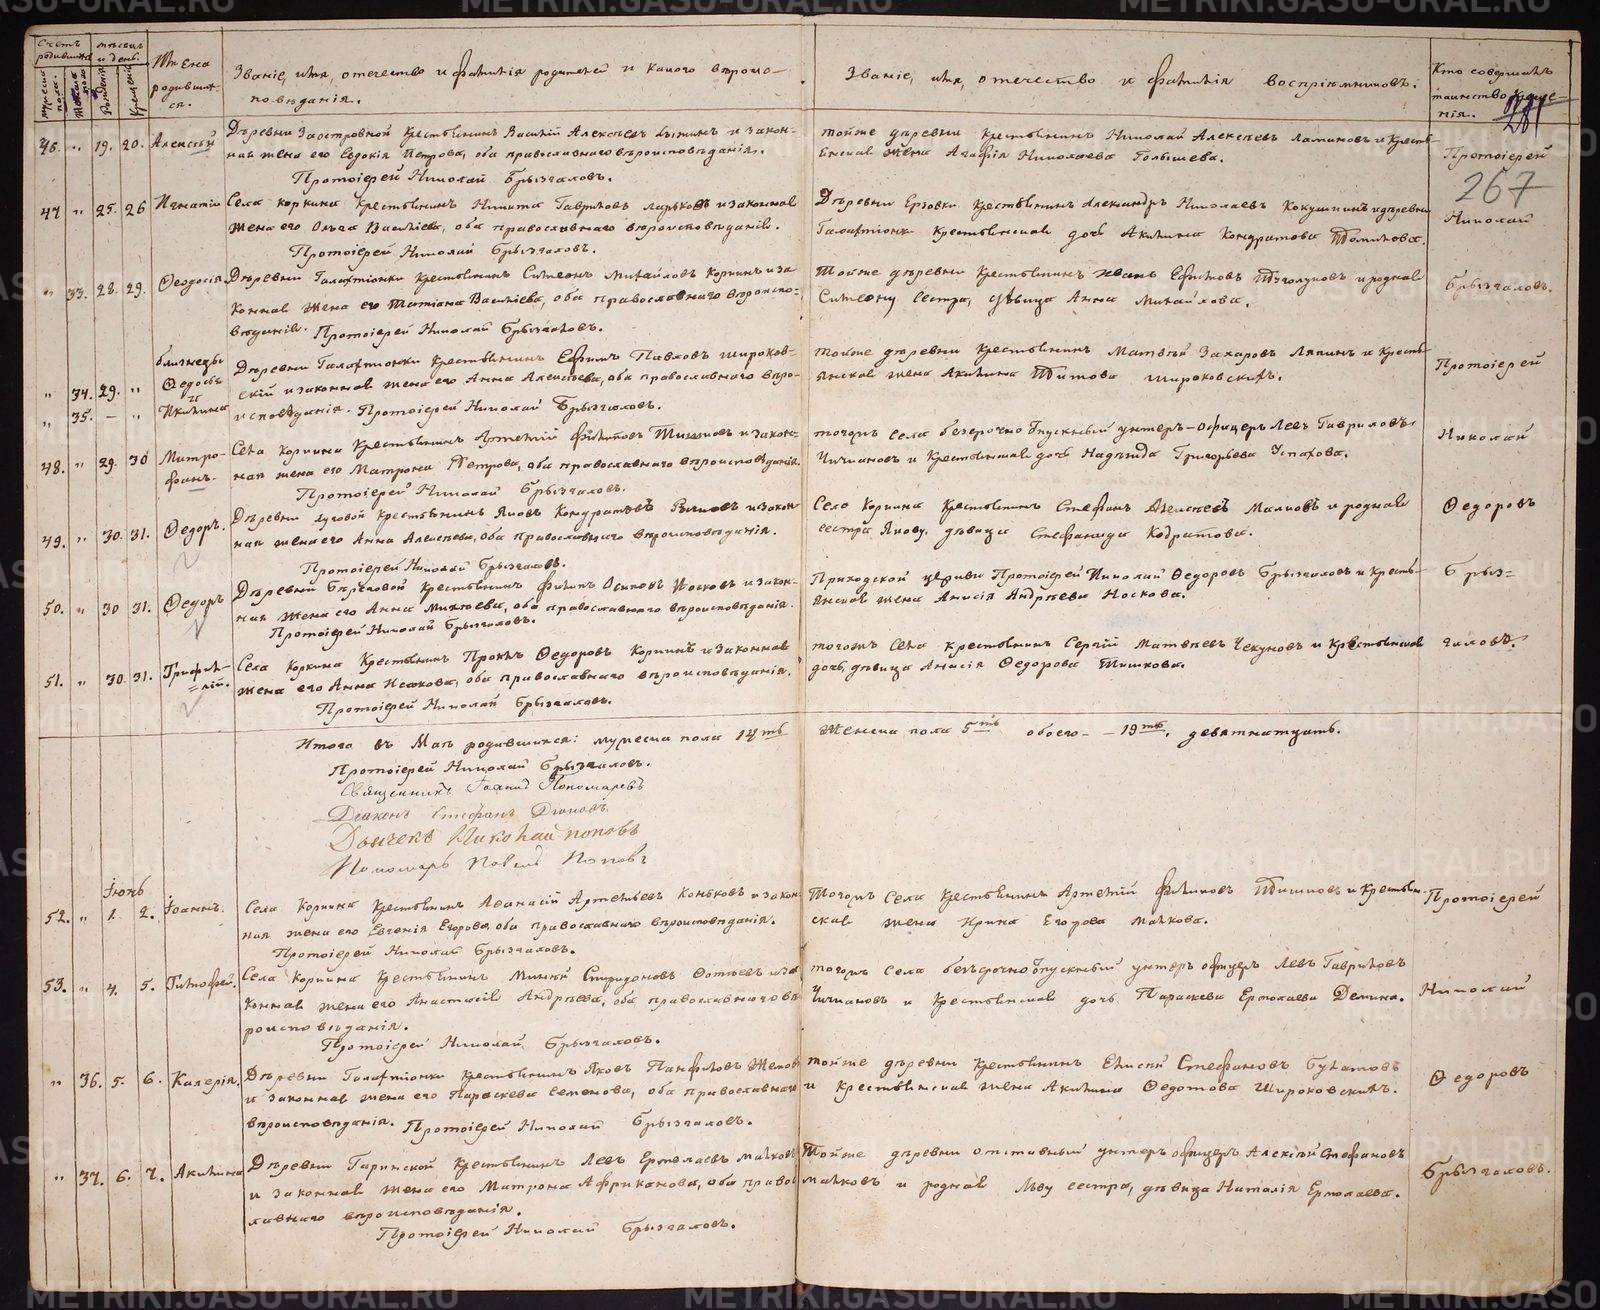 Счетъ родившихся
мѣсяцъ и день.
мужеска пола.
женска пола
рожденія
крещенія
Имена родивших-
ся.
Званіе, имя, отечество и фамилія родителей и какого вѣроис-
повѣданія.
Званіе, имя, отечество и фамилія воспріемниковъ.
Кто совершалъ
таинство креще-
нія.
267
46. " 19. 20. Алексѣй
Деревни Заостровной крестьянинъ Василій Алексѣевъ и закон-
ная жена его Евдокія Петрова, оба православнаго вѣроисповѣданія.
Протоіерей Николай Брызгаловъ.
тойже деревни крестьянинъ Николай Алексѣевъ и кресть-
янская жена Агафія Николаева Голышева.
Протоіерей
47 " 25. 26 Игнатій
Села Коркина крестьянинъ Никита Гавриловъ и законная
жена его Ольга Васильева, оба православнаго вѣроисповѣданія.
Протоіерей Николай Брызгаловъ.
Деревни Ерзовки крестьянинъ Александръ Николаевъ Кокушкинъ и деревни
Галактіонки крестьянская дочь Акилина Кондратова
Николай
" 33. 28. 29. Ѳеодосія
Деревни Галактіонки крестьянинъ Симеонъ Михайловъ Коркинъ и за-
конная жена его Татіана Васильева, оба православнаго вѣроиспо-
вѣданія. Протоіерей Николай Брызгаловъ.
Тойже деревни крестьянинъ Иванъ Ефимовъ и родная
Симеону сестра, дѣвица Анна Михайлова.
Брызгаловъ.
близнецы
" 34. 29. " Ѳедосья
и
" 35. — " Акилина
Деревни Галактіонки крестьянинъ Ефимъ Павловъ Широков-
скій и законная жена его Анна Алексѣева, оба православнаго вѣро-
исповѣданія. Протоіерей Николай Брызгаловъ.
тойже деревни крестьянинъ Матвѣй Захаровъ Ляпинъ и кресть-
янская жена Акилина Титова Широковскихъ.
Протоіерей
48. " 29. 30 Митро-
фанъ.
Села Коркина крестьянинъ Артемій Филиповъ Тишковъ и закон-
ная жена его Матрона Петрова, оба православнаго вѣроисповѣданія.
Протоіерей Николай Брызгаловъ.
тогожъ села безсрочно отпускный унтеръ-офицеръ Левъ Гавриловъ
Чичиановъ и крестьянская дочь Надежда Григорьева Усталова.
Николай
49. " 30. 31. Ѳедоръ.
Деревни Луговой крестьянинъ Яковъ Кондратьевъ и закон-
ная жена его Анна Алексѣева, оба православнаго вѣроисповѣданія.
Протоіерей Николай Брызгаловъ.
Села Коркина крестьянинъ Стефанъ Алексѣевъ Малковъ и родная
сестра Якову, дѣвица Стефанида Кодратова.
Ѳедоровъ
50. " 30 31. Ѳедоръ
Деревни Береговой крестьянинъ Филипъ Осиповъ Носковъ и закон-
ная жена его Анна Михеева, оба православнаго вѣроисповѣданія.
Протоіерей Николай Брызгаловъ.
Приходской церкви Протоіерей Николай Ѳедоровъ Брызгаловъ и кресть-
янская жена Анисія Андреева Носкова.
Брыз=
51. " 30. 31. Трифил-
=лій.
Села Коркина крестьянинъ Проклъ Ѳедоровъ Коркинъ и законная
жена его Анна Исакова, оба православнаго вѣроисповѣданія.
Протоіерей Николай Брызгаловъ.
тогожъ села крестьянинъ Сергій Матвѣевъ Чекуновъ и крестьянская
дочь, дѣвица Анисія Ѳедорова Тишкова.
галовъ.
Итого въ Маѣ родившихся: мужеска пола 14ть
женска пола 5ть обоего - - 19ть. девятнатцать.
Протоіерей Николай Брызгаловъ.
Священникъ Іоаннъ Пономаревъ
Діаконъ Стефанъ
Дьячекъ Николай Поповъ
Пономарь Павелъ Поповъ
Іюнь
52. " 1. 2. Іоаннъ.
Села Коркина крестьянинъ Аѳанасій Артемьевъ Коньковъ и закон-
ная жена его Евгенія Егорова, оба православнаго вѣроисповѣданія.
Протоіерей Николай Брызгаловъ.
Тогожъ села крестьянинъ Артемій Филиповъ Тишковъ и крестьян-
ская жена Ирина Егорова Малкова.
Протоіерей
53. " 4. 5. Тимоѳей.
Села Коркина крестьянинъ Спиридоновъ Ѳотѣевъ и за-
конная жена его Анастасія Андреева, оба православнаго вѣ-
роисповѣданія.
Протоіерей Николай Брызгаловъ.
тогожъ села безсрочно отпускный унтеръ офицеръ Левъ Гавриловъ
Чичиановъ и крестьянская дочь Параскева Ермолаева Демина.
Николай
" 36. 5. 6. Калерія.
Деревни Галактіонки крестьянинъ Яковъ Панфиловъ
и законная жена его Параскева Семенова, оба православнаго
вѣроисповѣданія. Протоіерей Николай Брызгаловъ.
тойже деревни крестьянинъ Елисей Стефановъ Булатовъ
и крестьянская жена Акилина Ѳедотова Широковскихъ.
Ѳедоровъ
" 37. 6. 7. Акилина
Деревни Гаринской крестьянинъ Левъ Ермолаевъ Малковъ
и законная жена его Матрона Африканова, оба право-
славнаго вѣроисповѣданія.
Протоіерей Николай Брызгаловъ.
Тойже деревни отставный унтеръ офицеръ Алексѣй Стефановъ
Малковъ и родная Льву сестра, дѣвица Наталія Ермолаева.
Брызгаловъ.
METRIKI.GASO-URAL.RU